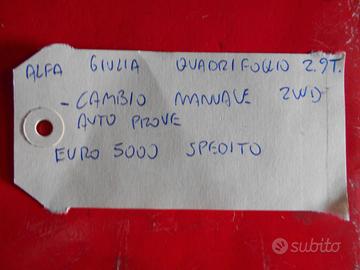 ALFA GIULIA QUADRIFOGLIO 2.9T.
- CAMBIO MANUALE 2WD
AUTO PROVE
EURO 5000 SPEDITO
subito